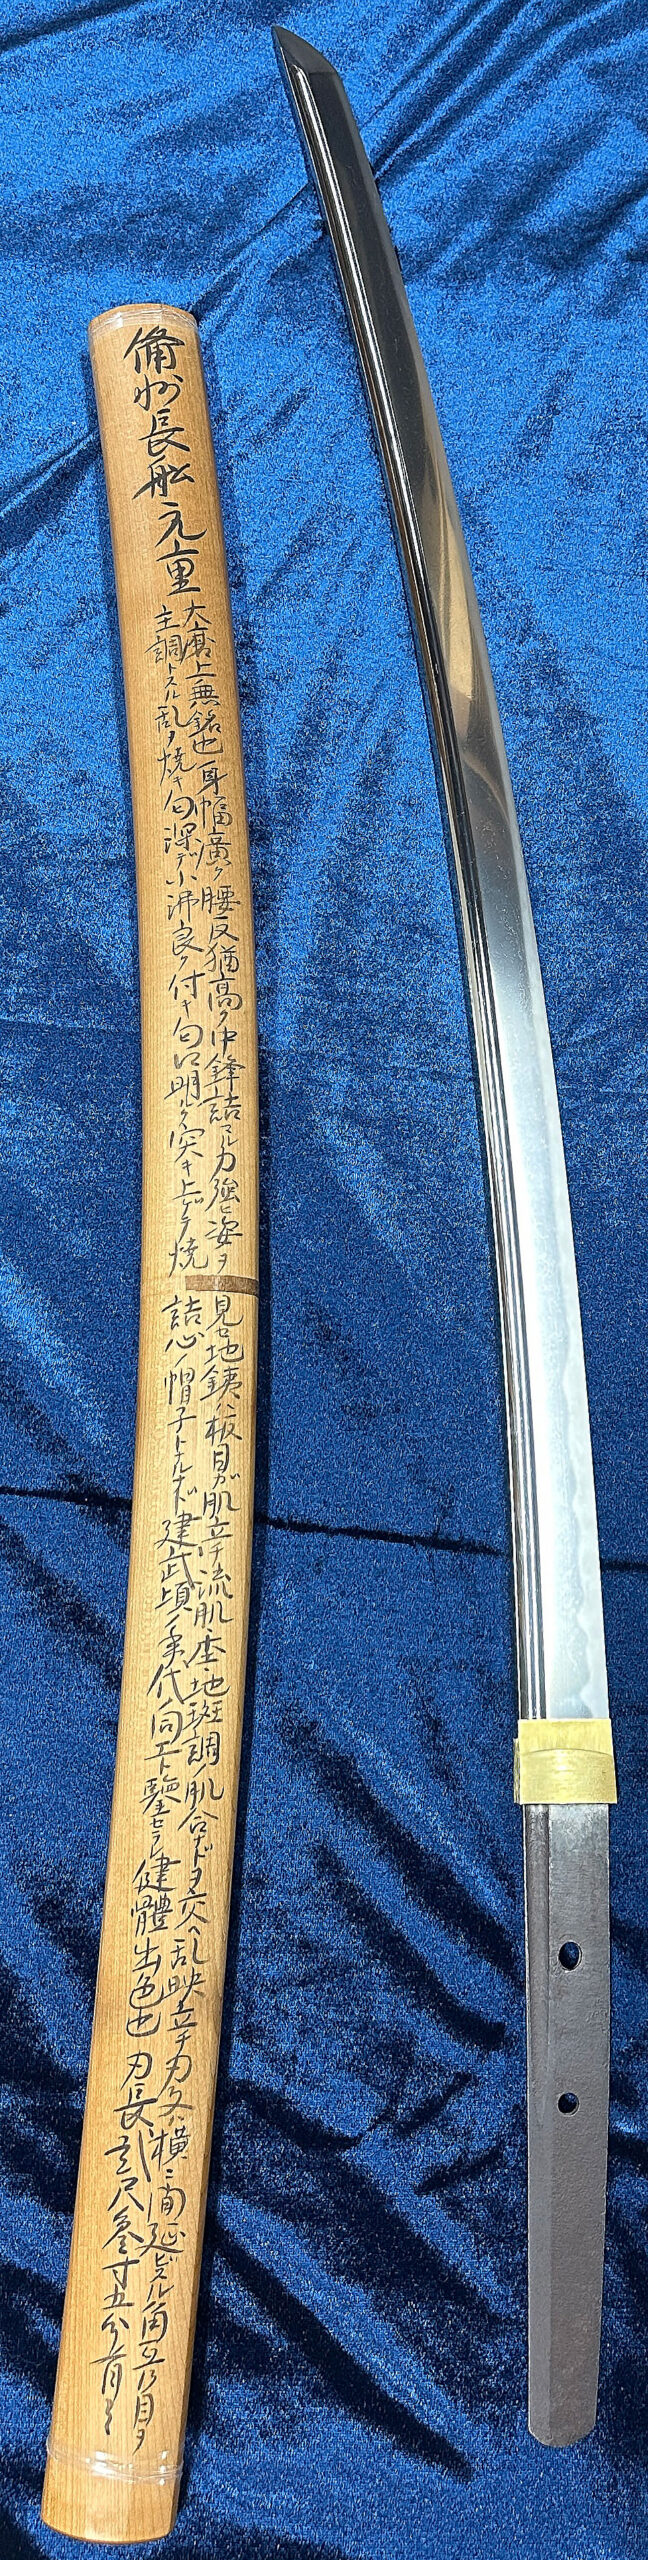 備州長船元重
大磨上無銘也身幅廣ク腰反猶高ク中鋒詰マル力強ヒ姿ヲ見セ地銕ハ板目ガ肌立チ流肌・杢・地斑調ノ肌合ナドヲ交ヘ乱映立チ刃文ハ横ニ間延ビスル角互乃目ヲ
主調トスル乱ヲ焼キ匂深デ小沸良ク付キ匂口明ルク突キ上ゲテ焼詰心ノ帽子トナルナド建武頃ノ年代同工ト鑒セラレ健體出色也 刃長弐尺参寸五分有之